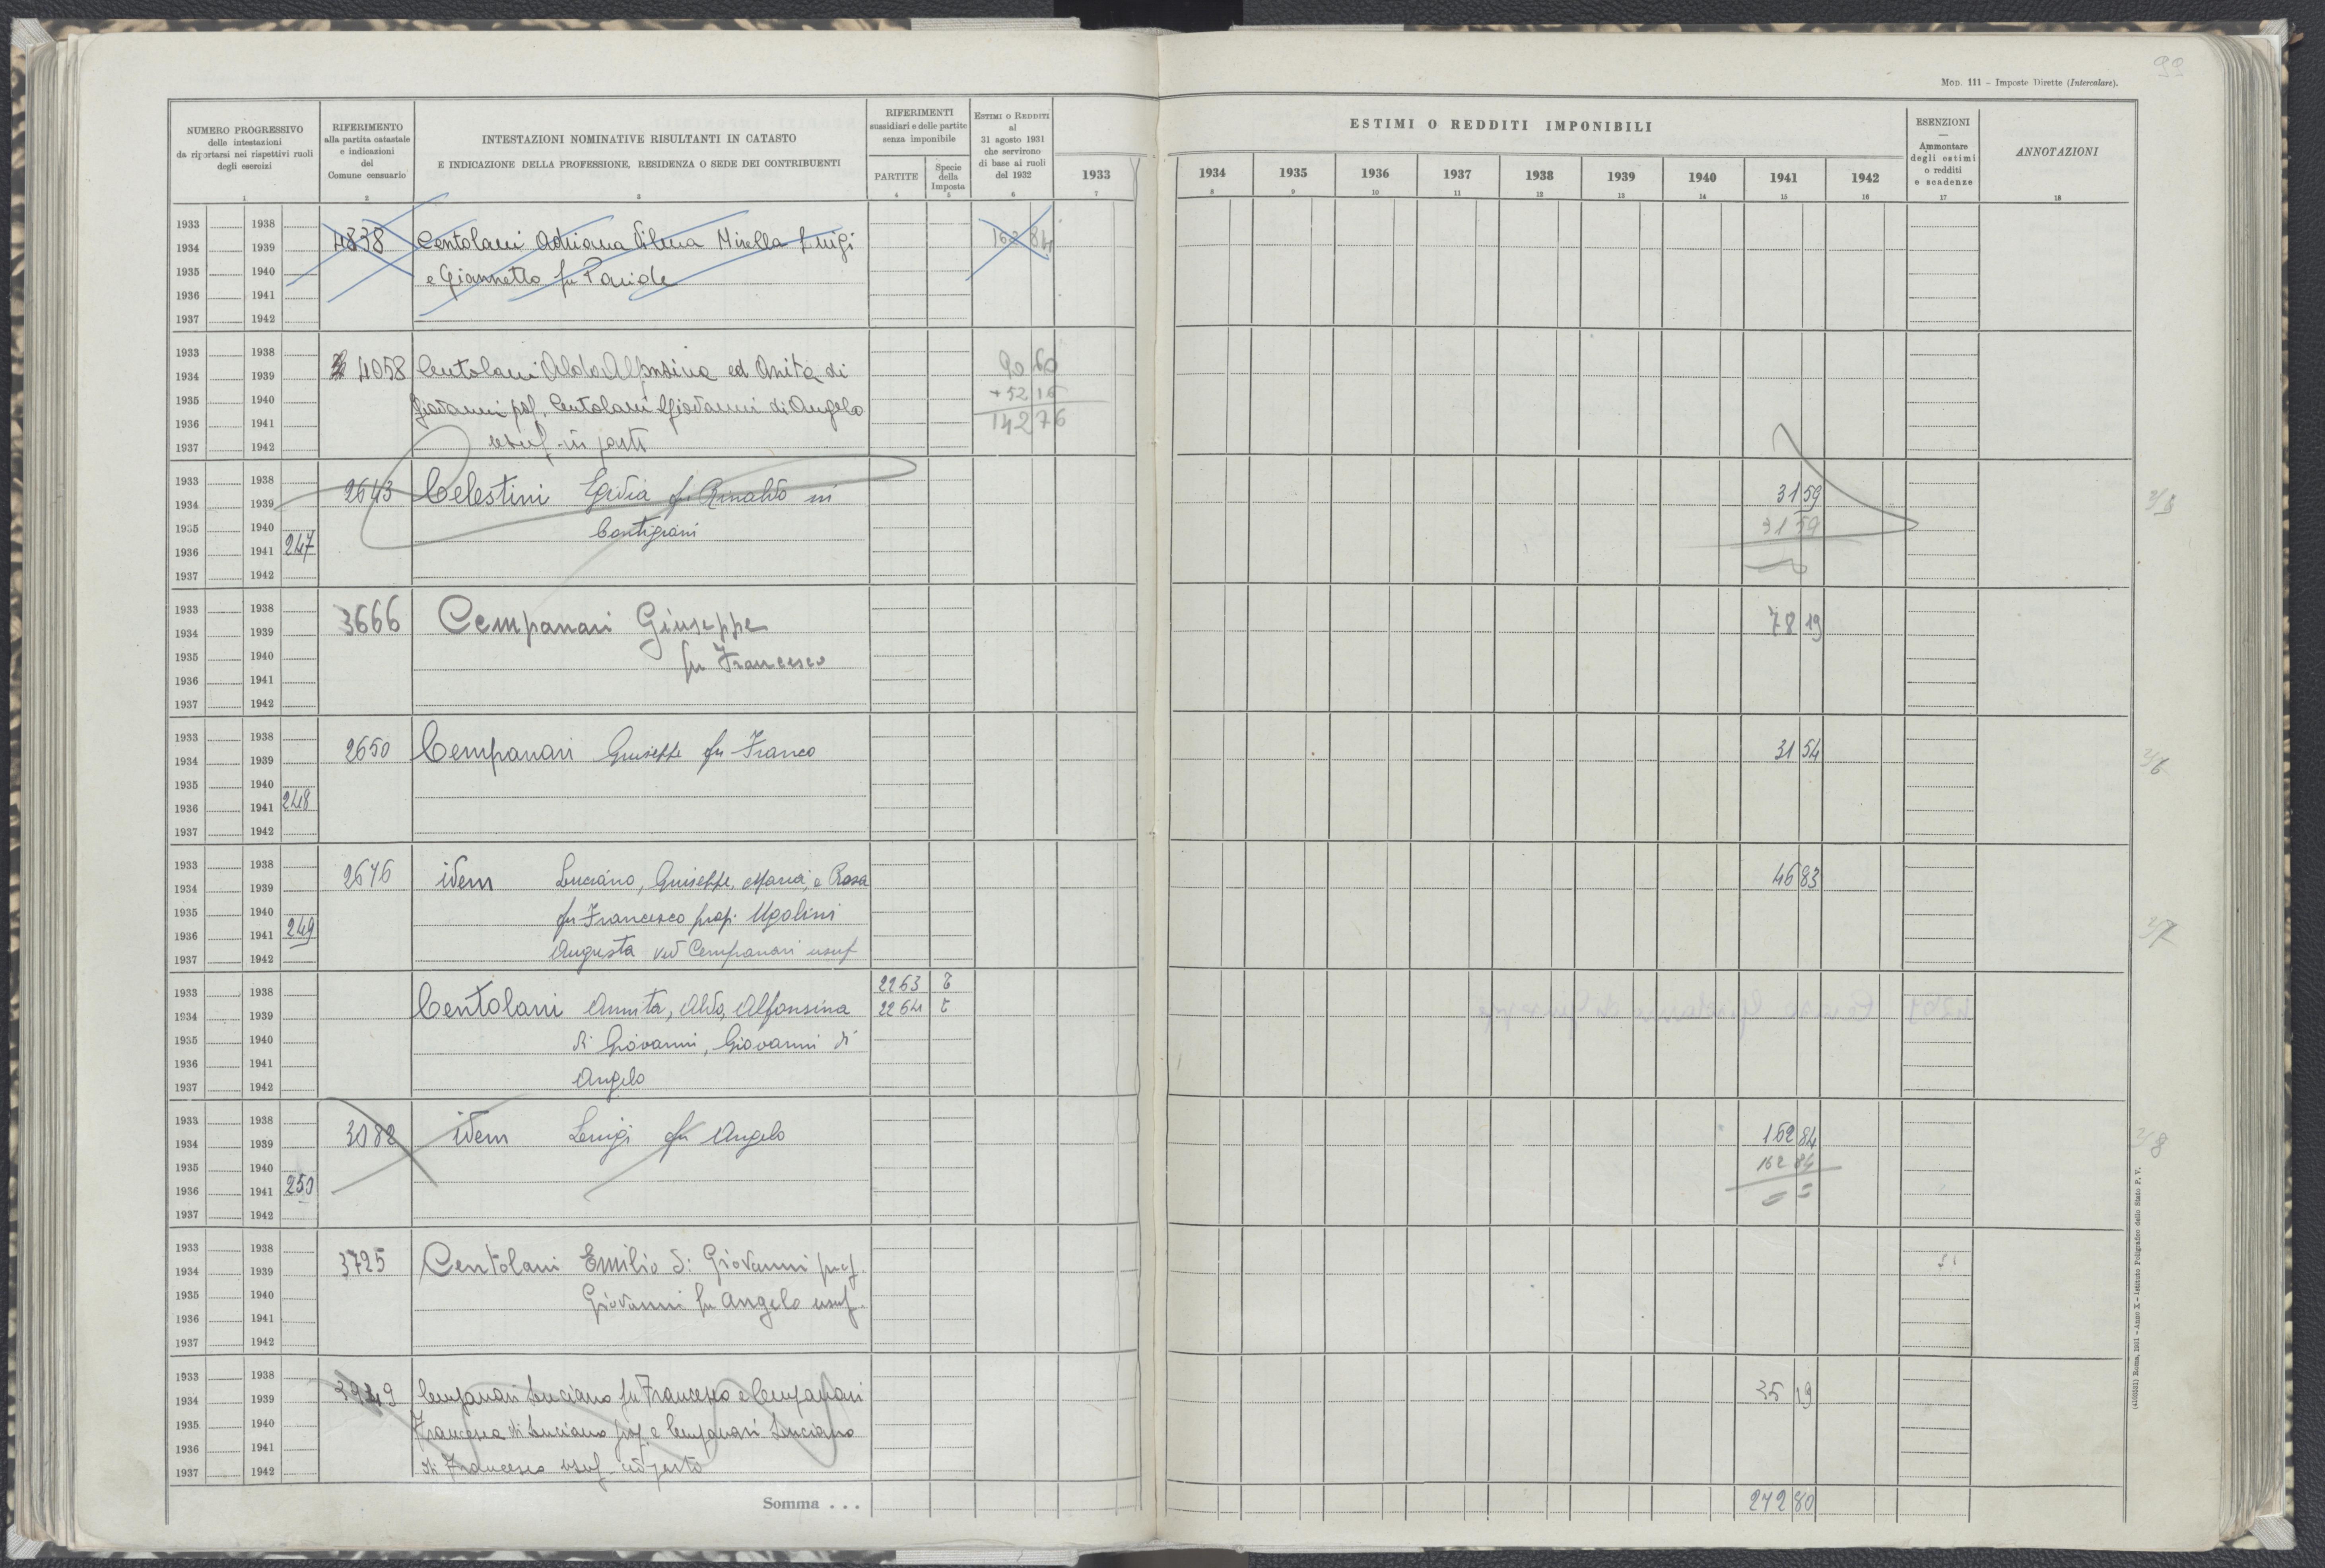 99
MOD. 111 - Imposte Dirette (Intercalare).
NUMERO PROGRESSIVO
delle intestazioni
da riportarsi nei rispettivi ruoli
degli esercizi
RIFERIMENTO
alla partita catastale
e indicazioni
del
Comune censuario
INTESTAZIONI NOMINATIVE RISULTANTI IN CATASTO
E INDICAZIONE DELLA PROFESSIONE, RESIDENZA O SEDE DEI CONTRIBUENTI
RIFERIMENTI
sussidiari e delle partite
senza imponibile
PARTITE
Specie
della
Imposta
ESTIMI O REDDITI
al
31 agosto 1931
che servirono
di base ai ruoli
del 1932
ESTIMI O REDDITI IMPONIBILI
1933 1934 1935 1936 1937 1938 1939 1940 1941 1942
ESENZIONI
—
Ammontare
degli estimi
o redditi
e scadenze
ANNOTAZIONI
1 2 3 4 5 6 7 8 9 10 11 12 13 14 15 16 17 18
1933 1938
1934 1939 4838 Centolani Adriana Vilma Mirella Luigi 162 84
1935 1940 e Giannetto fu Paride
1936 1941
1937 1942
1933 1938
1934 1939 4058 Centolani Aldo Alfonsina ed Anita di 90 60
1935 1940 Giovanni prop. Centolani Giovanni di Angelo + 52 16
1936 1941 usuf. in parte 142 76
1937 1942
1933 1938
1934 1939 2643 Celestini fu Rinaldo in 31 59
1935 1940 Cantigiani 31 59
1936 1941 247
1937 1942
1933 1938
1934 1939 3666 Cempanari Giuseppe 78 19
1935 1940 fu Francesco
1936 1941
1937 1942
1933 1938
1934 1939 2650 Cempanari Giuseppe fu Franco 31 54
1935 1940
1936 1941 248
1937 1942
1933 1938
1934 1939 2646 idem Luciano, Giuseppe, Maria, e Rosa 46 83
1935 1940 fu Francesco prop. Ugolini
1936 1941 249
1937 1942 Augusta ved Cempanari usuf
1933 1938 2263 T
1934 1939 Centolani Annita, Aldo, Alfonsina 2264 T
1935 1940 di Giovanni, Giovanni di
1936 1941
1937 1942 Angelo
1933 1938
1934 1939 3082 idem Luigi fu Angelo 162 84
1935 1940 162 84
1936 1941 250 = =
1937 1942
1933 1938
1934 1939 3725 Centolani Emilio di Giovanni prop.
1935 1940 Giovanni fu Angelo usuf.
1936 1941
1937 1942
1933 1938
1934 1939 Cempanari Luciano fu Francesco e Cempanari 35 19
1935 1940 Francesca di Luciano prop. e Cempanari Luciano
1936 1941
1937 1942 di Francesco usuf. in parte
Somma . . . 272 80
(4100531) Roma, 1931 - Anno X - Istituto Poligrafico dello Stato P. V.